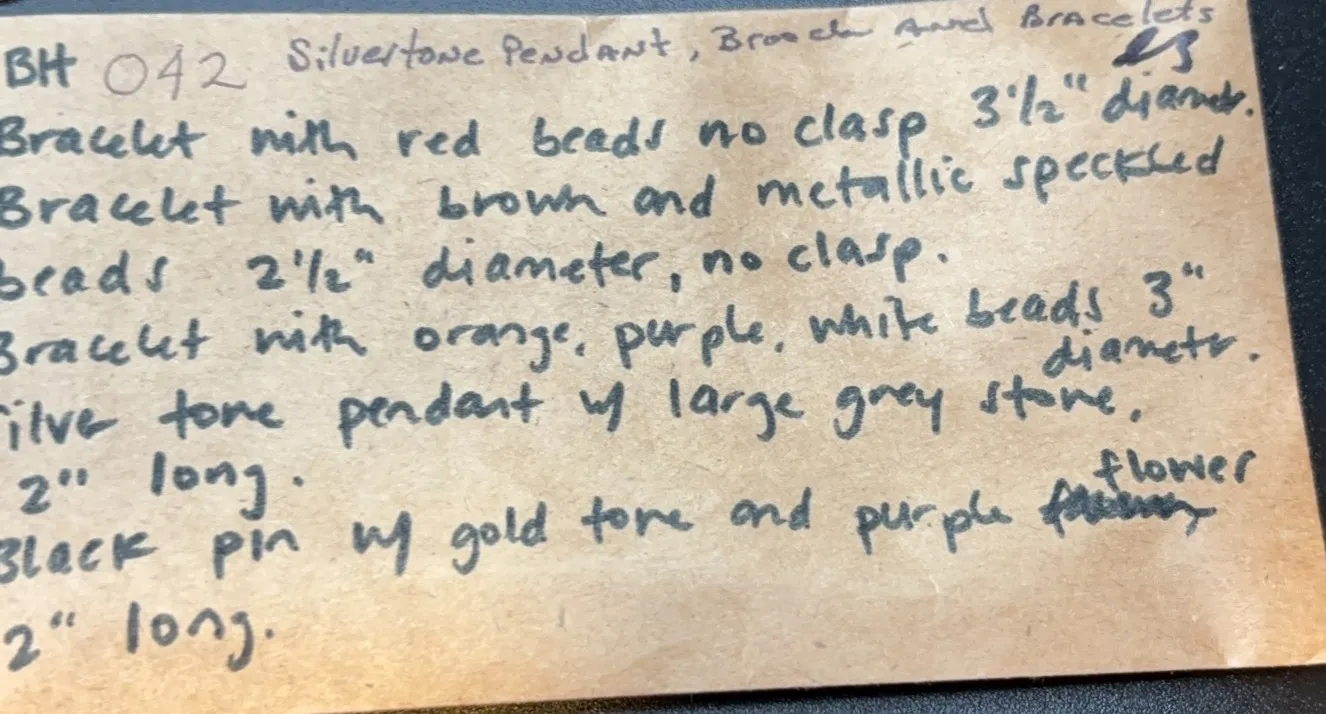 BH 042 Silvertone Pendant, Brooch And Bracelets
es
Bracelet with red beads no clasp 3 1/2" diameter.
Bracelet with brown and metallic speckled
beads 2 1/2" diameter, no clasp.
Bracelet with orange, purple, white beads 3"
diameter.
ilver tone pendant w/ large grey stone,
2" long.
Black pin w/ gold tone and purple flower
2" long.